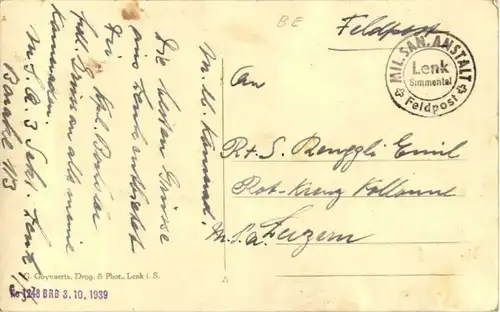 BE
Feldpost
MIL. SAN. ANSTALT
Lenk
Simmental
Feldpost
M. lb. Kamerad.
Die besten Grüsse
aus Lenk entbietet
Dir Kpl.
Gruss an alle meine
Kameraden.
M.S.A. 3 Sekt. Lenk
Barake N3
An
R+S. Renggli Emil
Rot-Kreuz Kollonne
M.S.A. Luzern
G. Goyvaerts, Drog. & Phot., Lenk i. S.
No 1248 BRB 3. 10. 1939